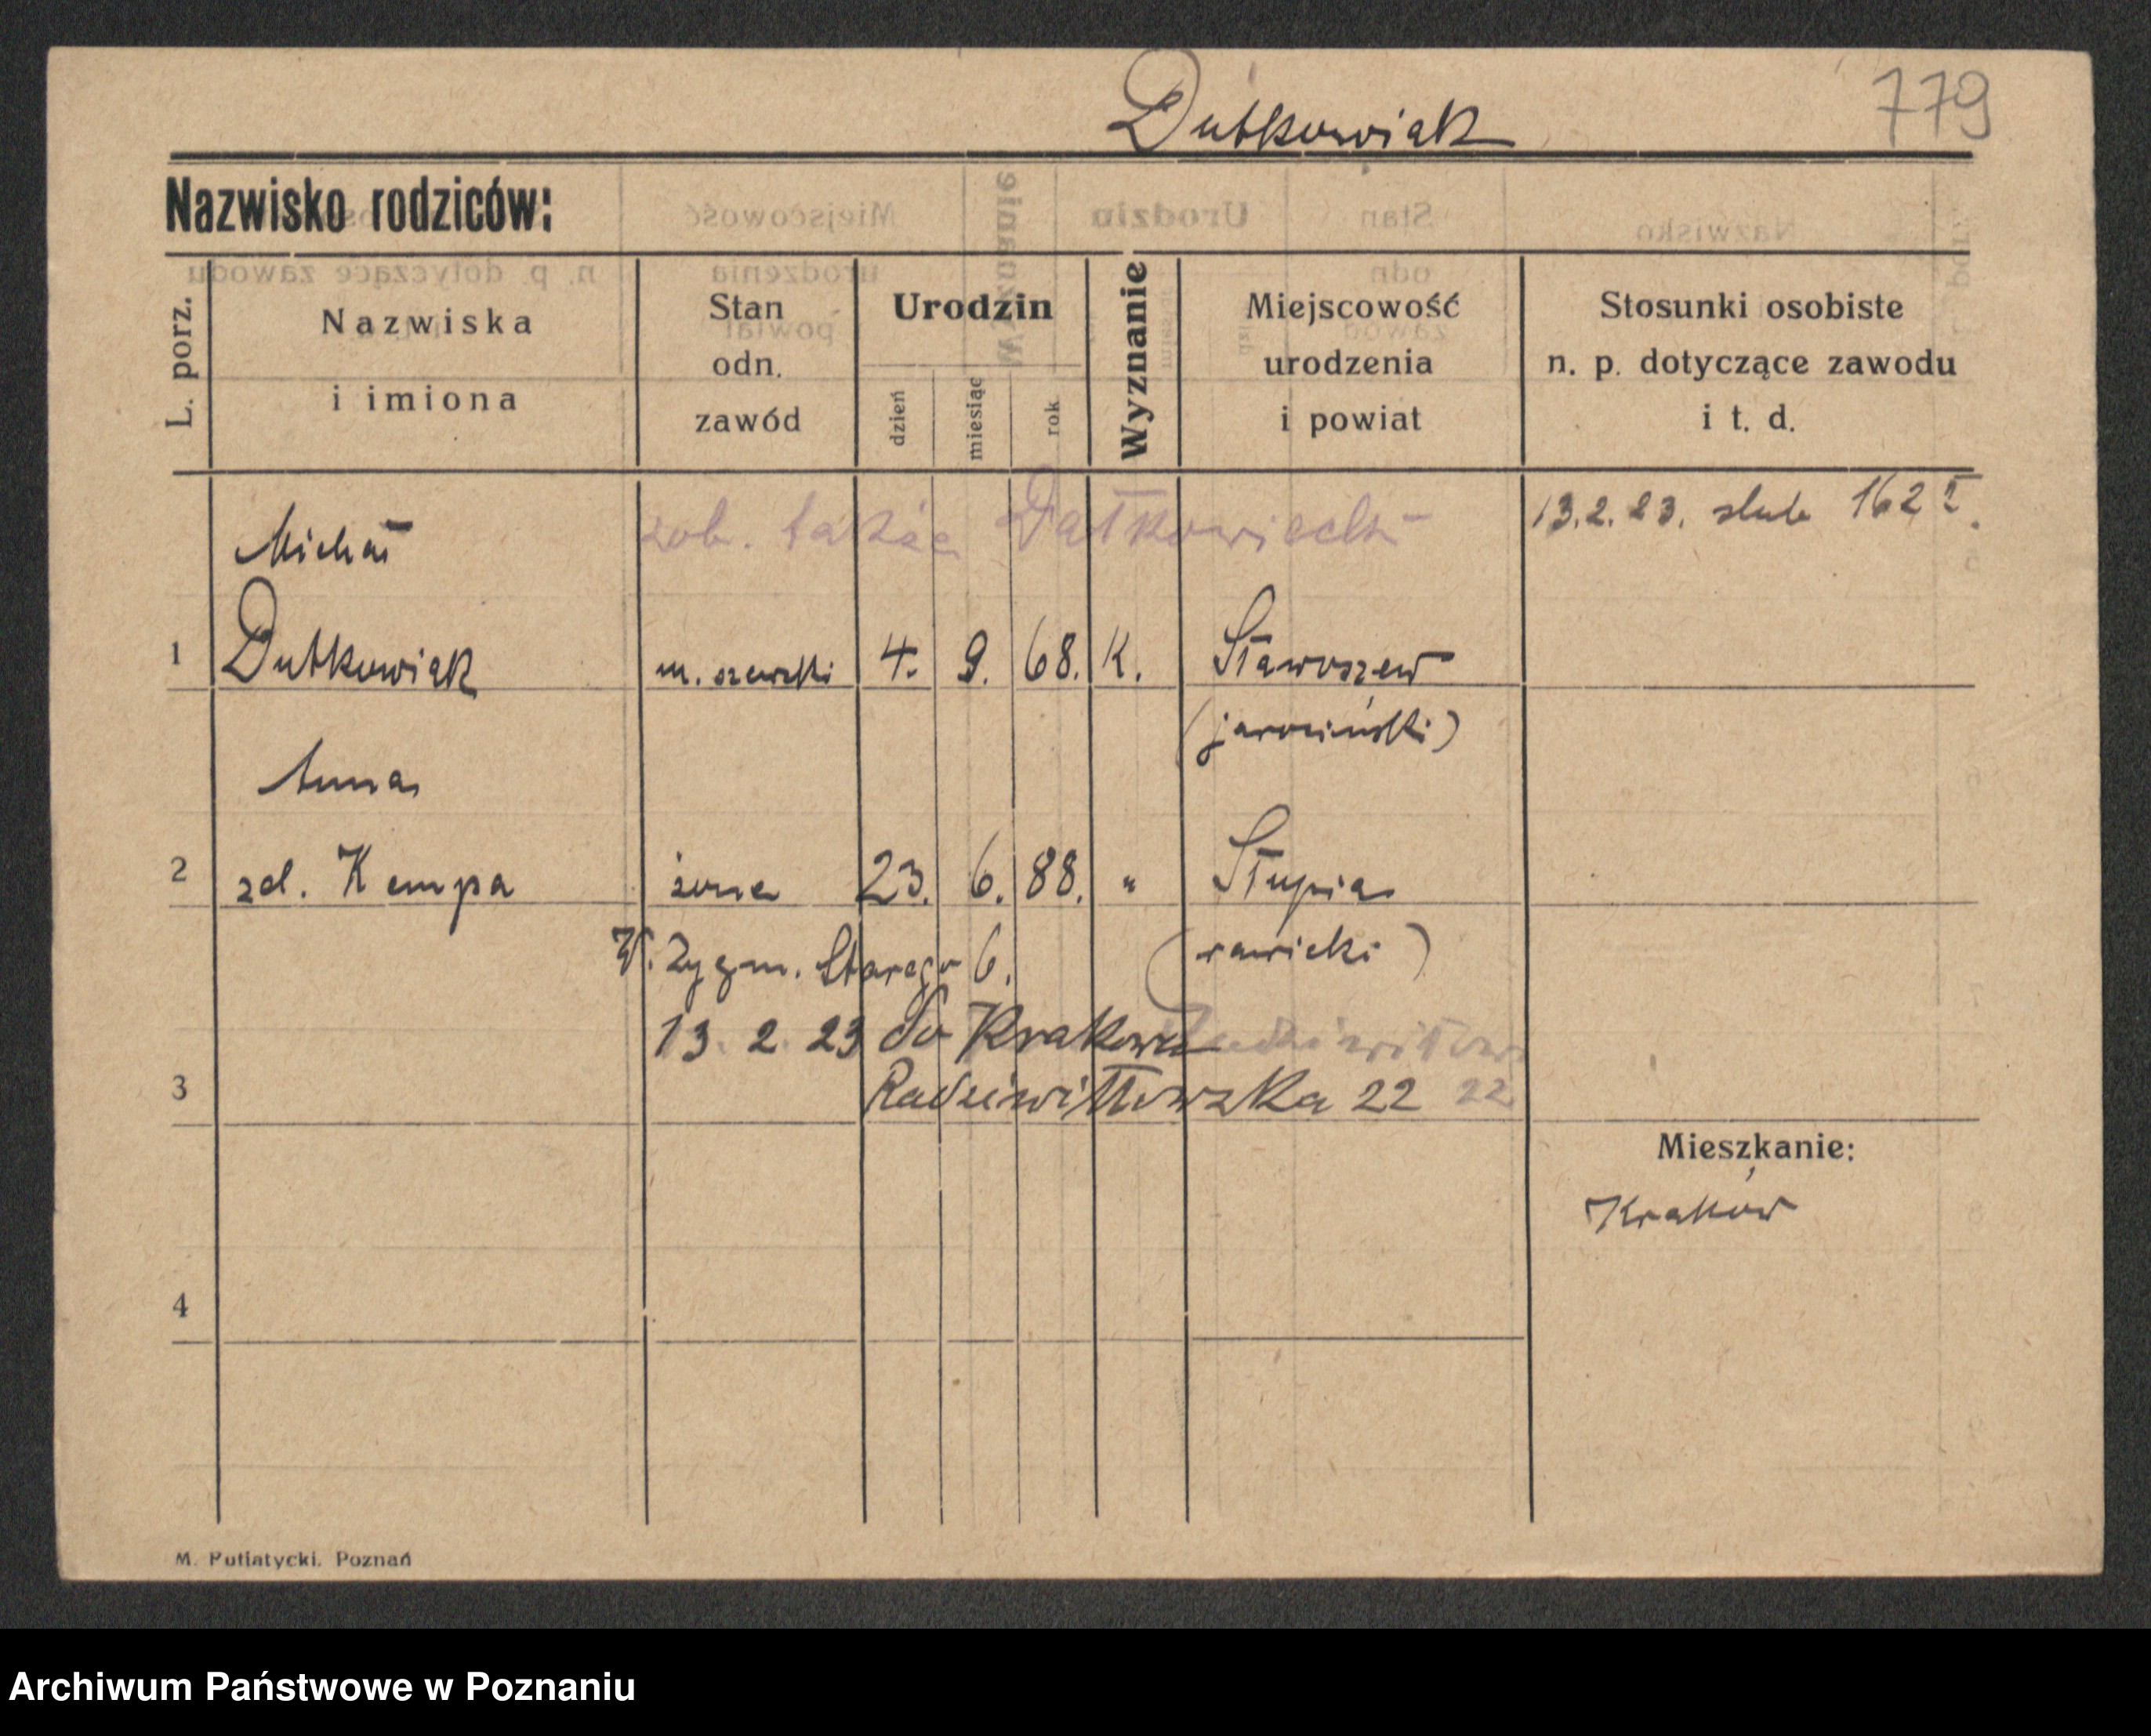 779
Dutkowiak
Nazwisko rodziców:
L. porz.
Nazwiska i imiona
Stan odn. zawód
Urodzin
dzień
miesiąc
rok
Wyznanie
Miejscowość urodzenia i powiat
Stosunki osobiste n. p. dotyczące zawodu i t. d.
zob. także
13.2.23. slub
Michał
1 Dutkowiak m. szewski 4. 9. 68. K. Staworzew
(jarociński)
Anna
2 zd. Kempa żona 23. 6. 88. " Słupia
(rawicki)
W. Zygm. Starego 6.
13. 2. 23 do Krakowa
3 Radziwiłłowska 22 22
Mieszkanie:
Kraków
4
M. Putiatycki. Poznań
Archiwum Państwowe w Poznaniu